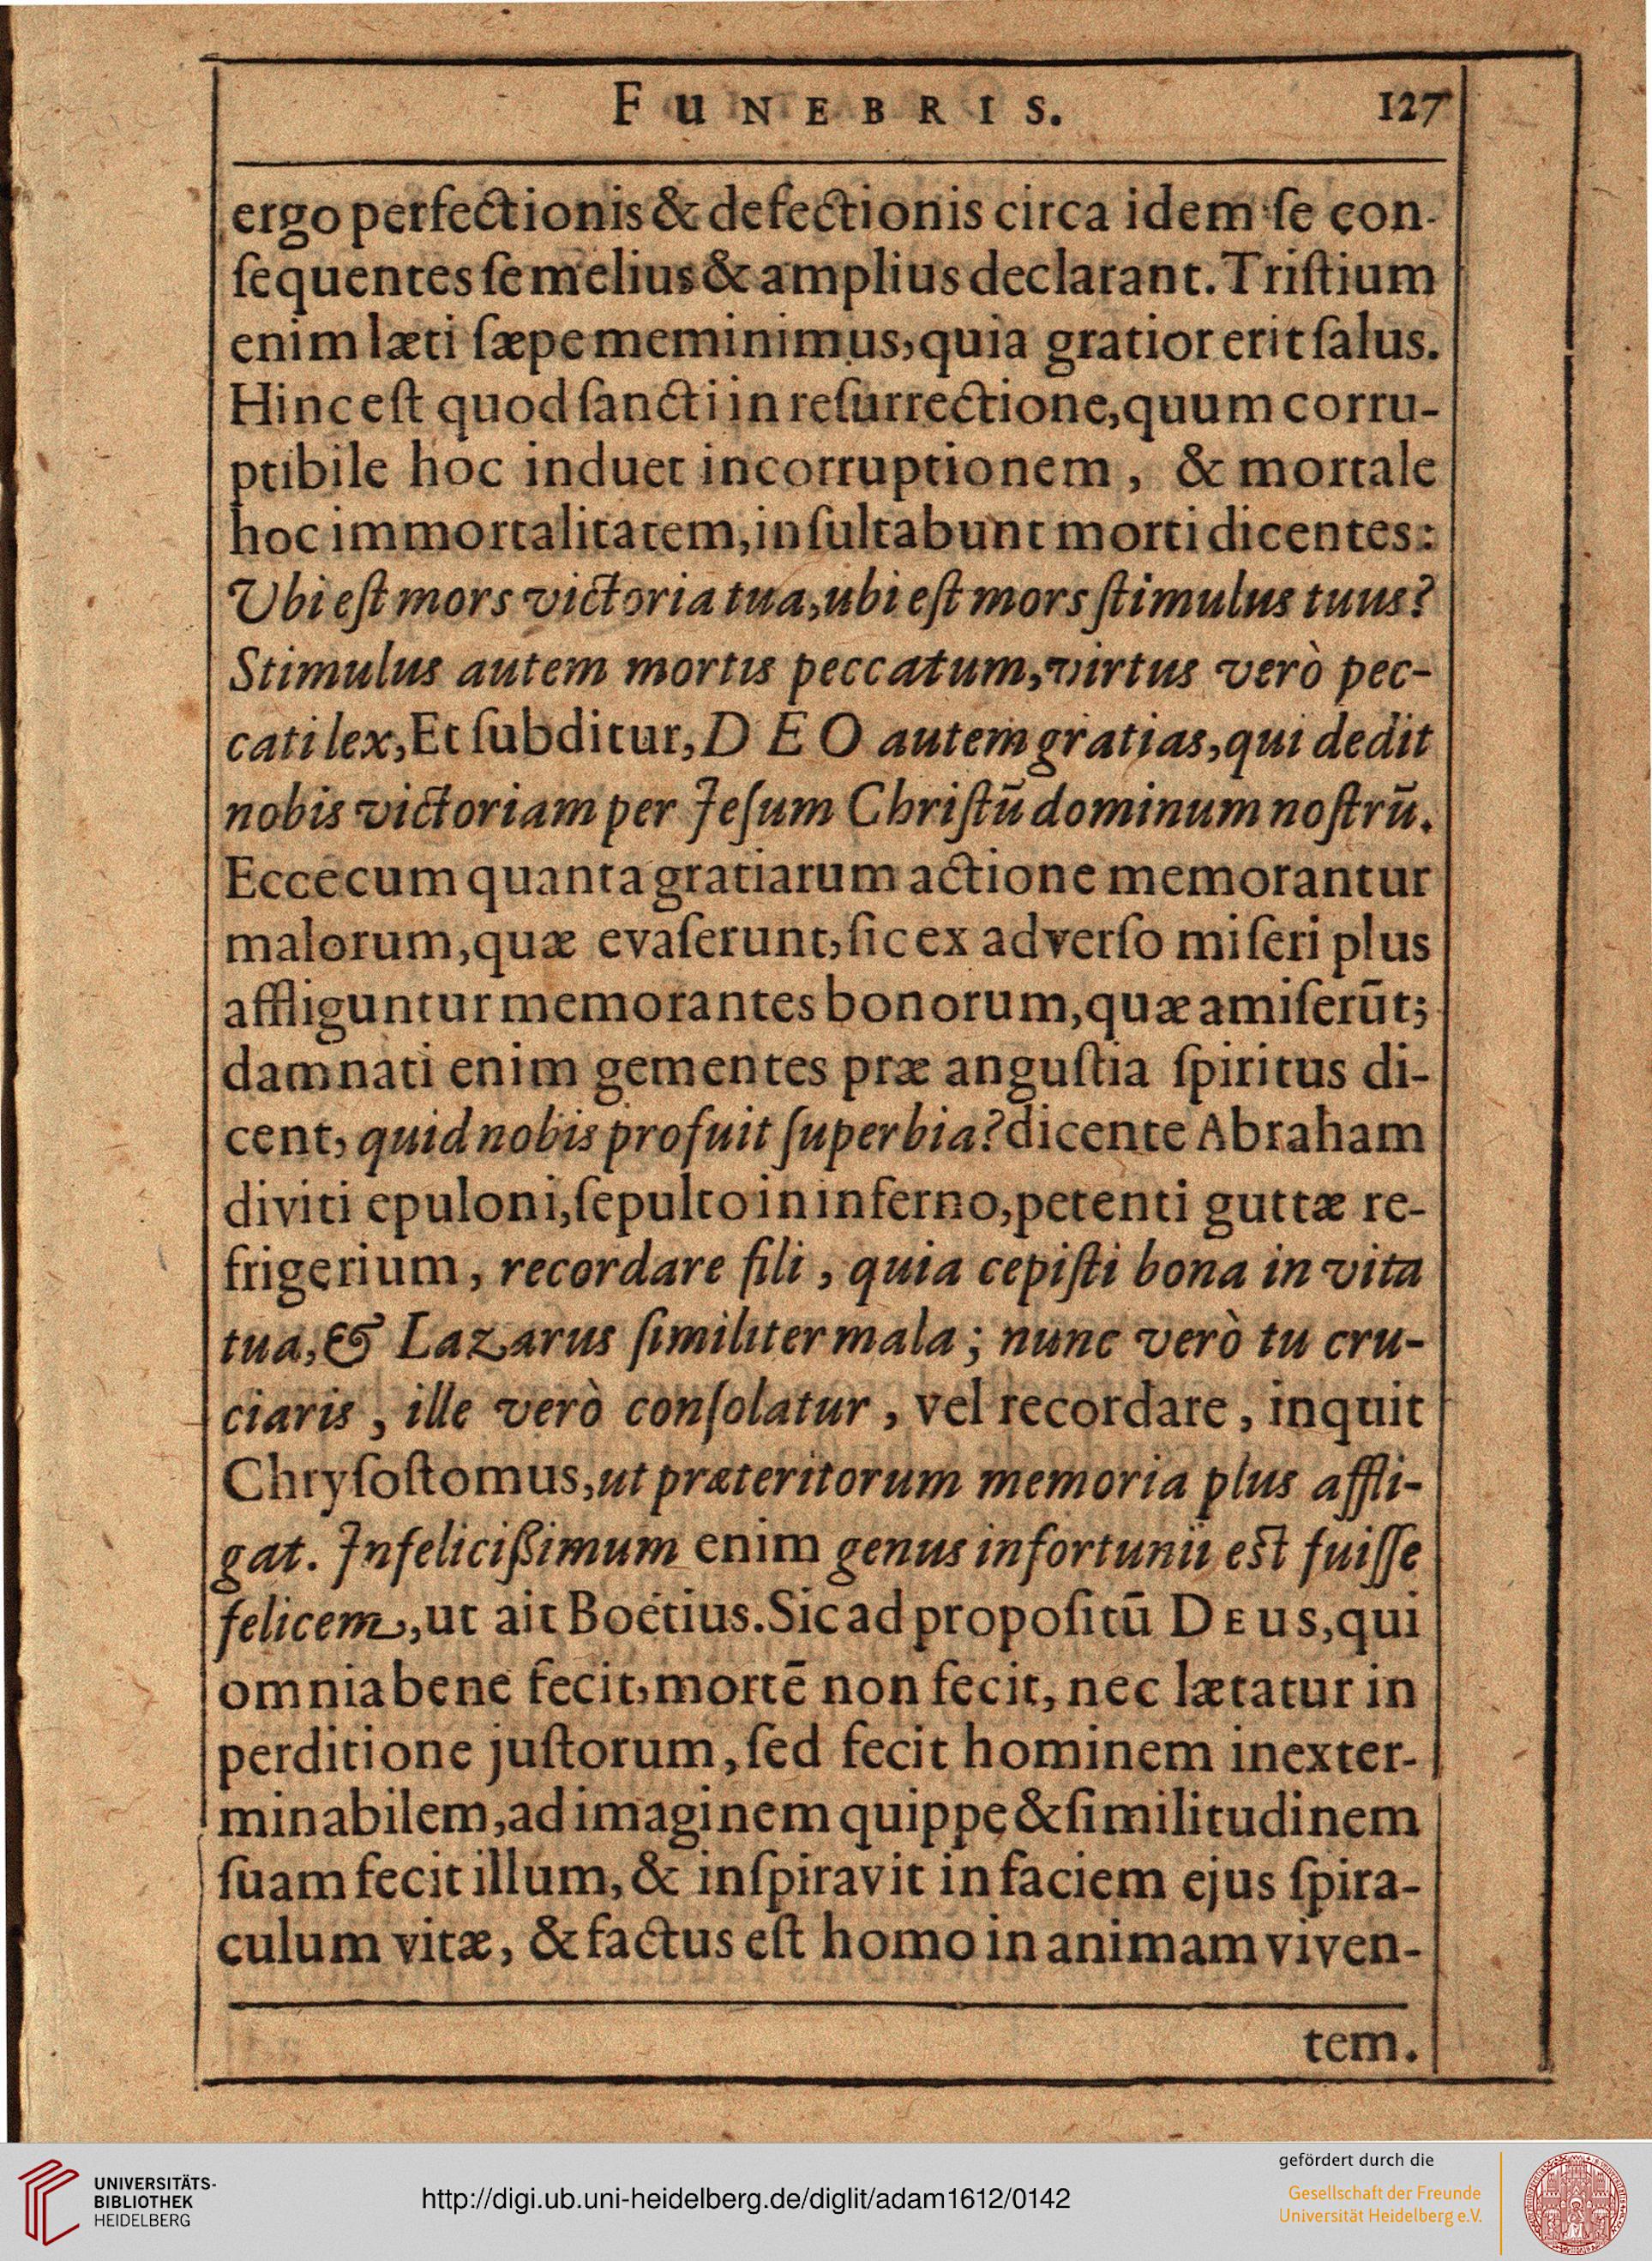 FUNEBRIS. 127
ergo perfectionis & defectionis circa idem se con-
ſequentes ſe melius & amplius declarant. Triſtium
enim læti ſæpe meminimus, quia gratior erit ſalus.
Hinc eſt quod ſancti in reſurrectione, quum corru-
ptibile hoc induet incorruptionem, & mortale
hoc immortalitatem, inſultabunt morti dicentes:
Ubi eſt mors victoria tua, ubi eſt mors ſtimulus tuus?
Stimulus autem mortis peccatum, virtus verò pec-
cati lex, Et ſubditur, DEO autem gratias, qui dedit
nobis victoriam per Jeſum Chriſtū dominum noſtrū.
Ecce cum quanta gratiarum actione memorantur
malorum, quæ evaſerunt, ſic ex adverſo miſeri plus
affliguntur memorantes bonorum, quæ amiſerūt;
damnati enim gementes præ anguſtia ſpiritus di-
cent, quid nobis profuit ſuperbia? dicente Abraham
diviti epuloni, ſepulto in inferno, petenti guttæ re-
frigerium, recordare fili, quia cepiſti bona in vita
tua, & Lazarus ſimiliter mala; nunc verò tu cru-
ciaris, ille verò conſolatur, vel recordare, inquit
Chryſoſtomus, ut præteritorum memoria plus affli-
gat. Infeliciſsimum enim genus infortunii eſt fuiſſe
felicem, ut ait Boëtius. Sic ad propoſitū DEUS, qui
omnia bene fecit, mortē non fecit, nec lætatur in
perditione juſtorum, ſed fecit hominem inexter-
minabilem, ad imaginem quippe & ſimilitudinem
ſuam fecit illum, & inſpiravit in faciem ejus ſpira-
culum vitæ, & factus eſt homo in animam viven-
tem.
UNIVERSITÄTS-
BIBLIOTHEK
HEIDELBERG
http://digi.ub.uni-heidelberg.de/diglit/adam1612/0142
gefördert durch die
Gesellschaft der Freunde
Universität Heidelberg e.V.